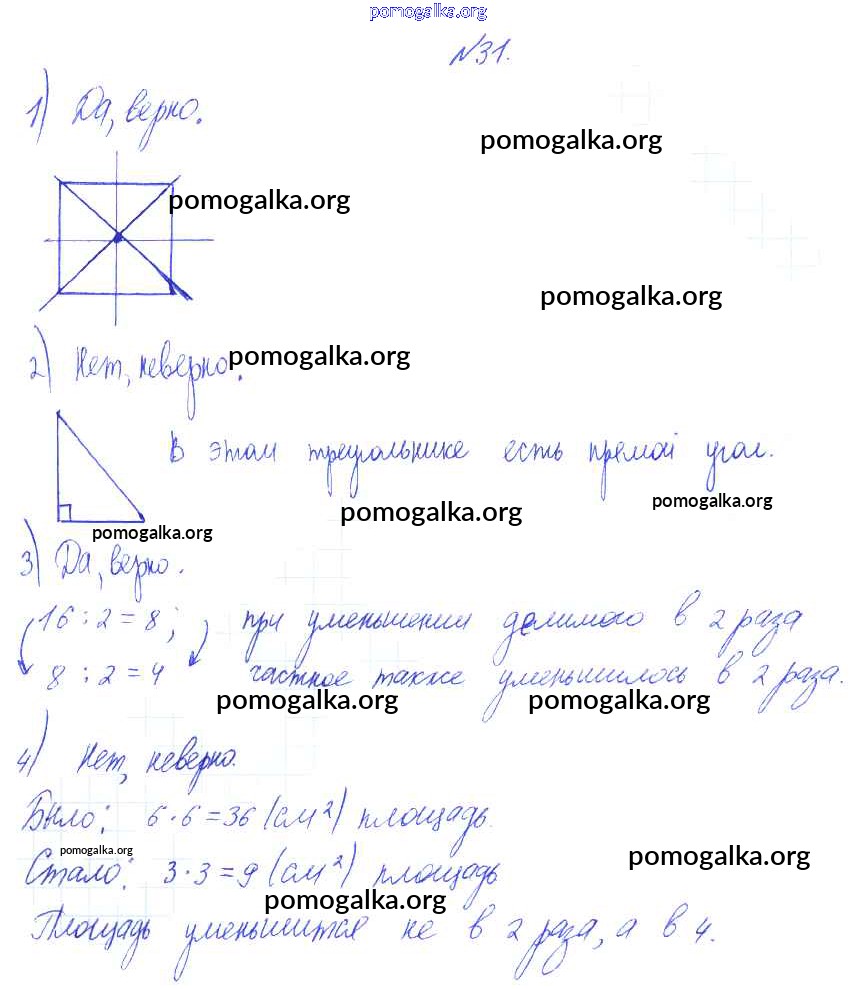 pomogalka.org
№31.
1) Да, верно.
pomogalka.org
pomogalka.org
pomogalka.org
2) Нет, неверно.
pomogalka.org
В этом треугольнике есть прямой угол.
pomogalka.org
pomogalka.org
pomogalka.org
3) Да, верно.
16 : 2 = 8; при уменьшении делимого в 2 раза
8 : 2 = 4 частное также уменьшилось в 2 раза.
pomogalka.org
pomogalka.org
4) Нет, неверно.
Было: 6 · 6 = 36 (см²) площадь.
pomogalka.org
pomogalka.org
Стало: 3 · 3 = 9 (см²) площадь
pomogalka.org
Площадь уменьшится не в 2 раза, а в 4.